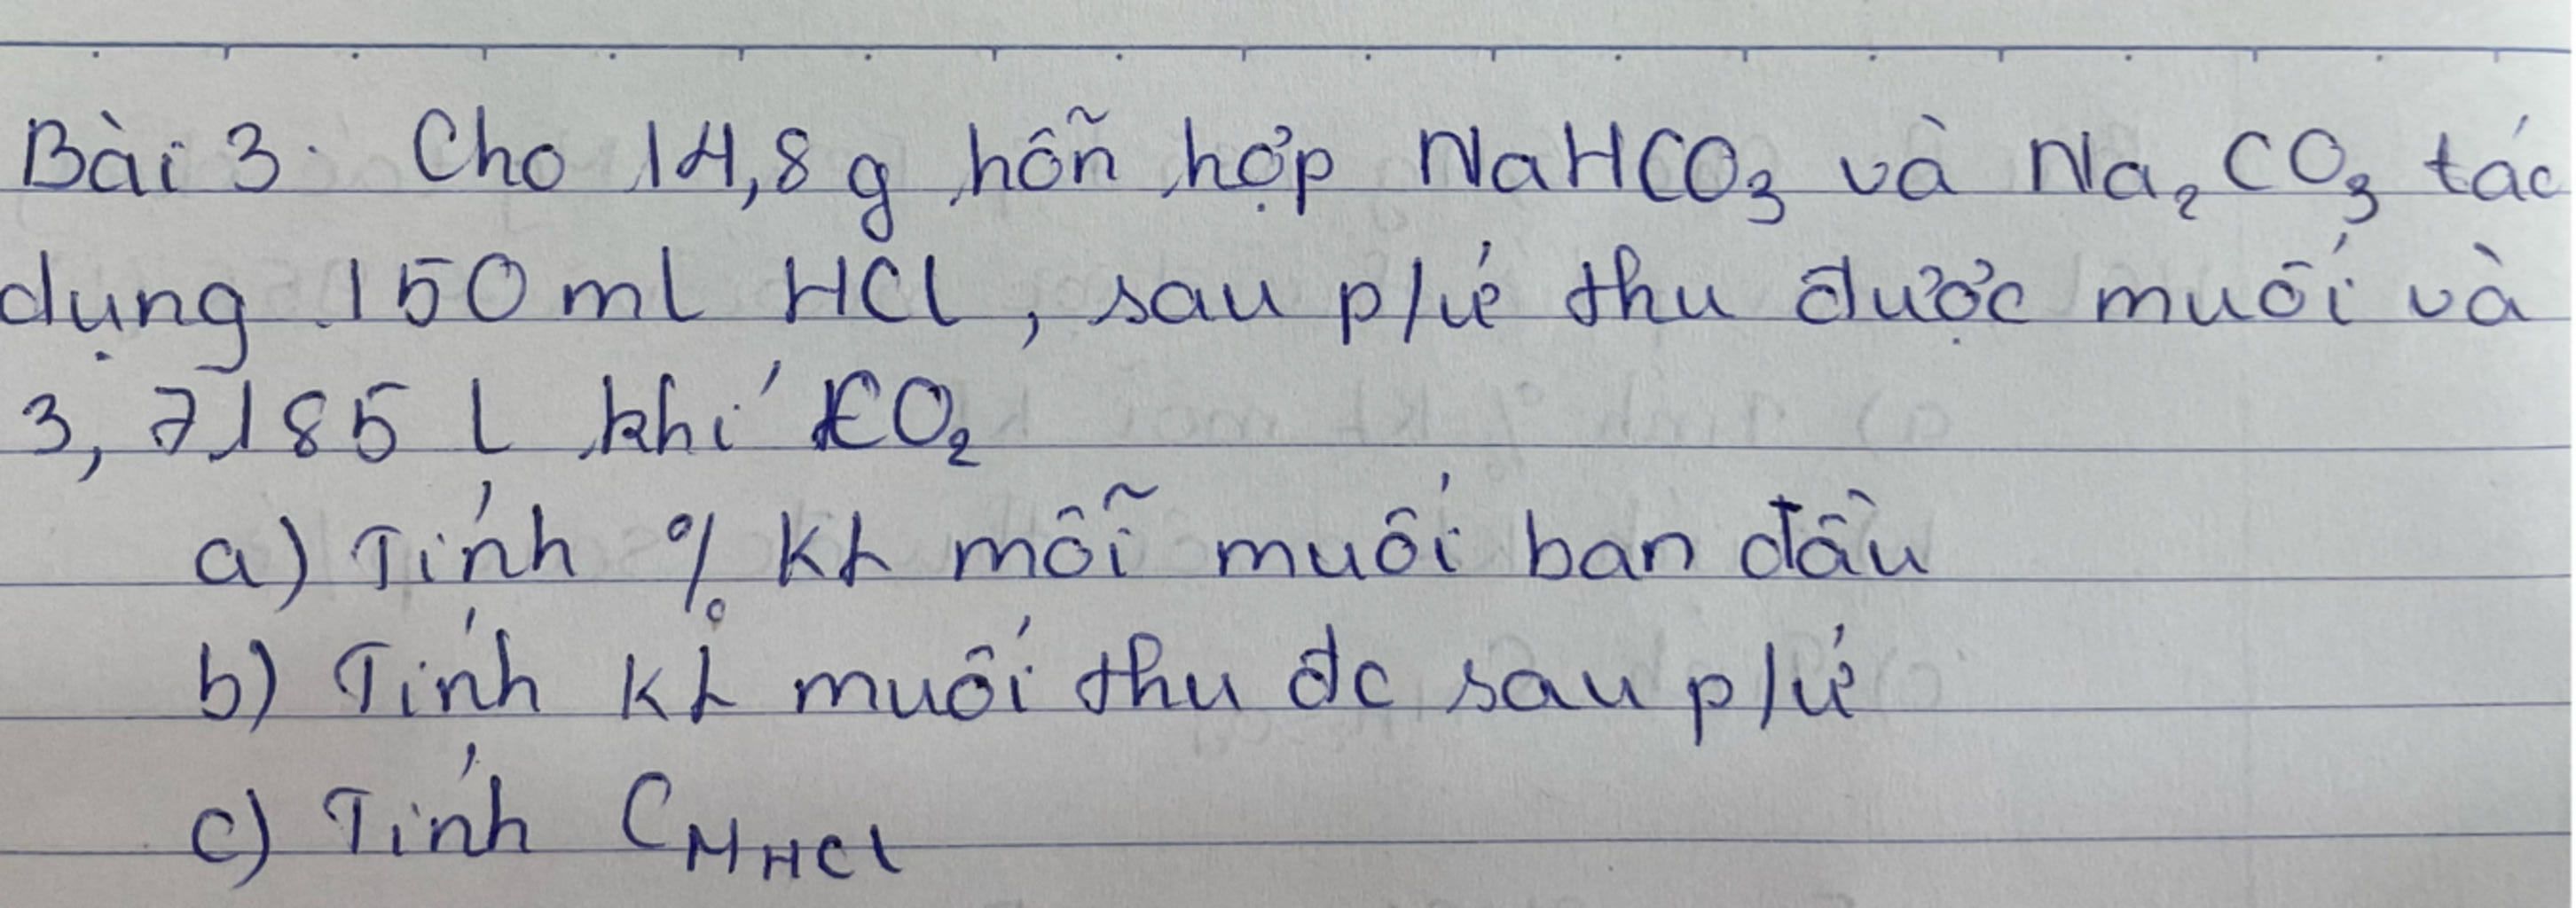 Bài 3: Cho 14,8 g hỗn hợp NaHCO₃ và Na₂CO₃ tác
dụng 150 ml HCl, sau p/ứ thu được muối và
3,7185 l khí CO₂
a) Tính % KL mỗi muối ban đầu
b) Tính KL muối thu đc sau p/ứ
c) Tính CM HCl